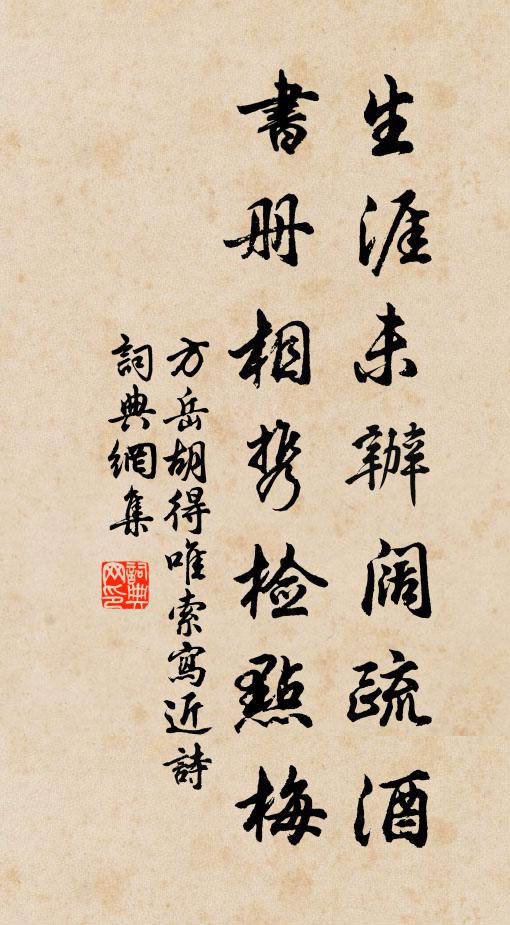 生涯未辦闊疏酒
書册相携檢點梅
方岳胡得唯索寫近詩
詞典網集
詞典网印